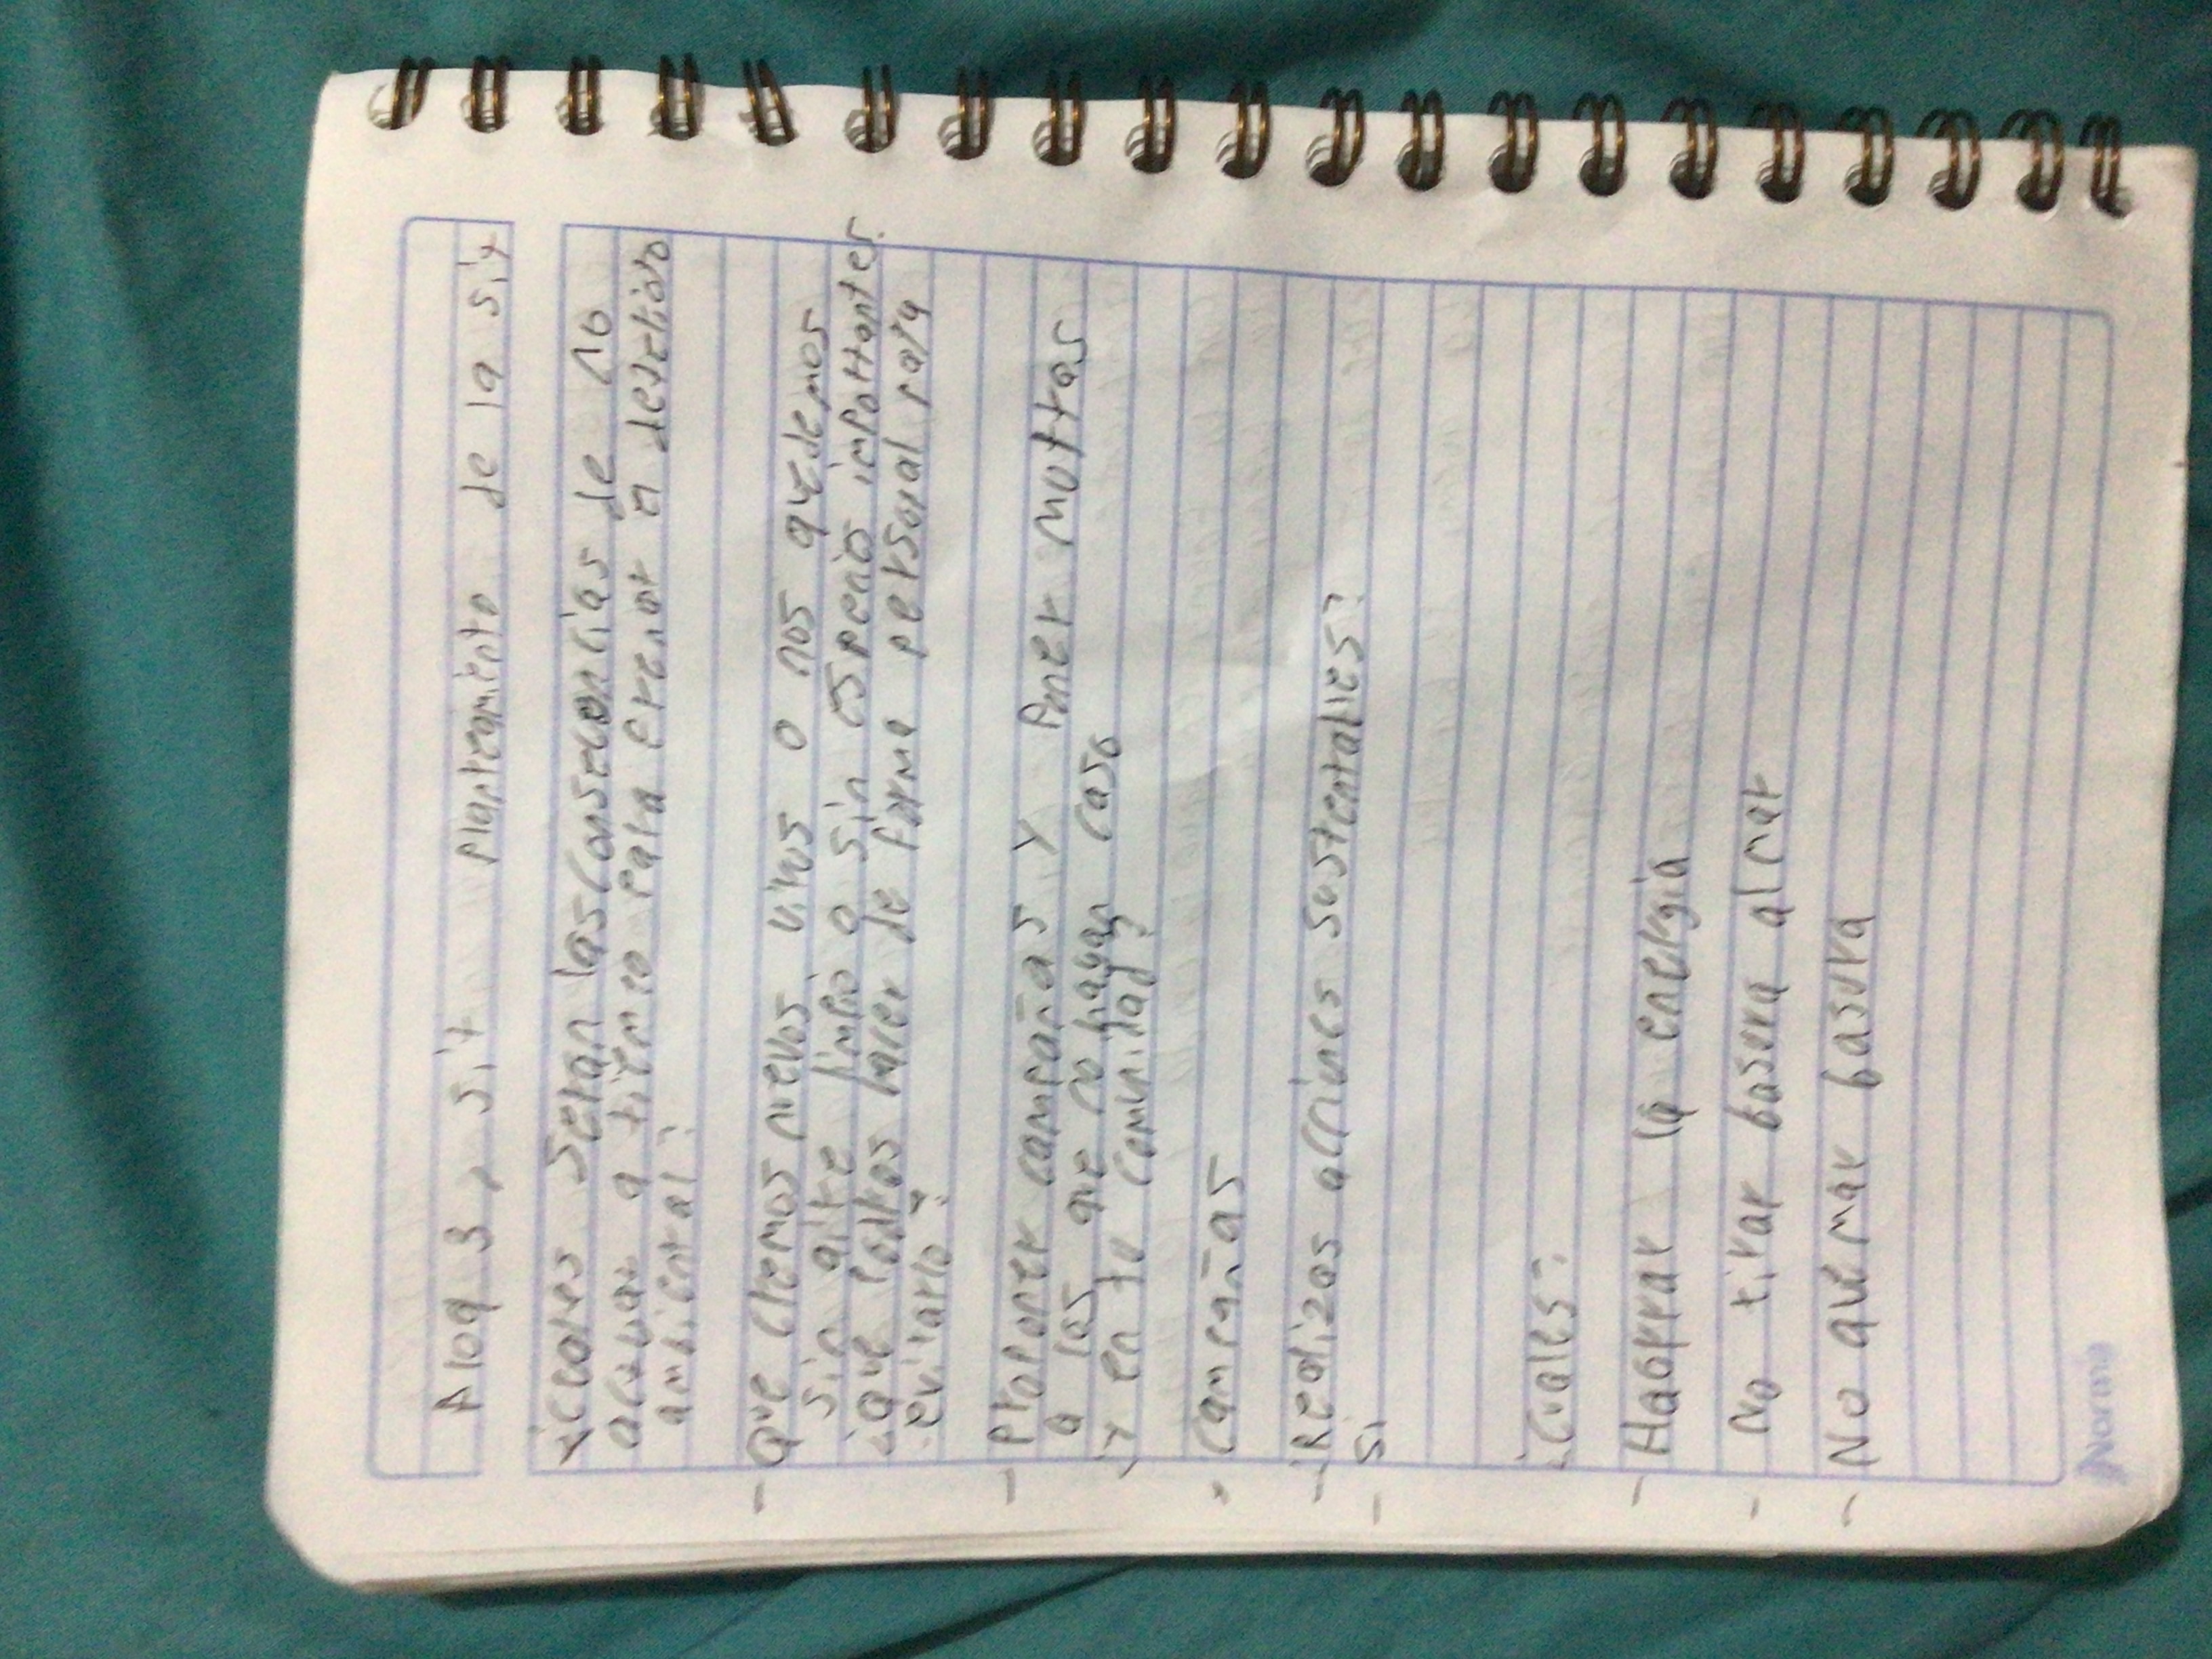 Prog 3, sit planteamiento de la sit
¿Cuales Seran las consecuencias de no
actuar a tiempo para frenar el deterioro
ambiental?
- Que cremos nuevos virus o nos quedemos
sin aire limpio o sin especies importantes.
¿que podrias hacer de forma personal para
evitarlo?
- Proponer campañas y Poner multas
a las que no hagan caso
¿Y en tu comunidad?
- Campañas
- ¿Realizas acciones sustentables?
- Si
¿Cuales?
- Haorrar la energia
- No tirar basura al mar
- No quemar basura
Norma